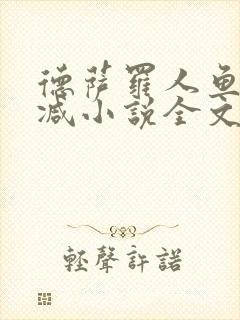 德薩羅人魚
减小説全文
輕聲許諾